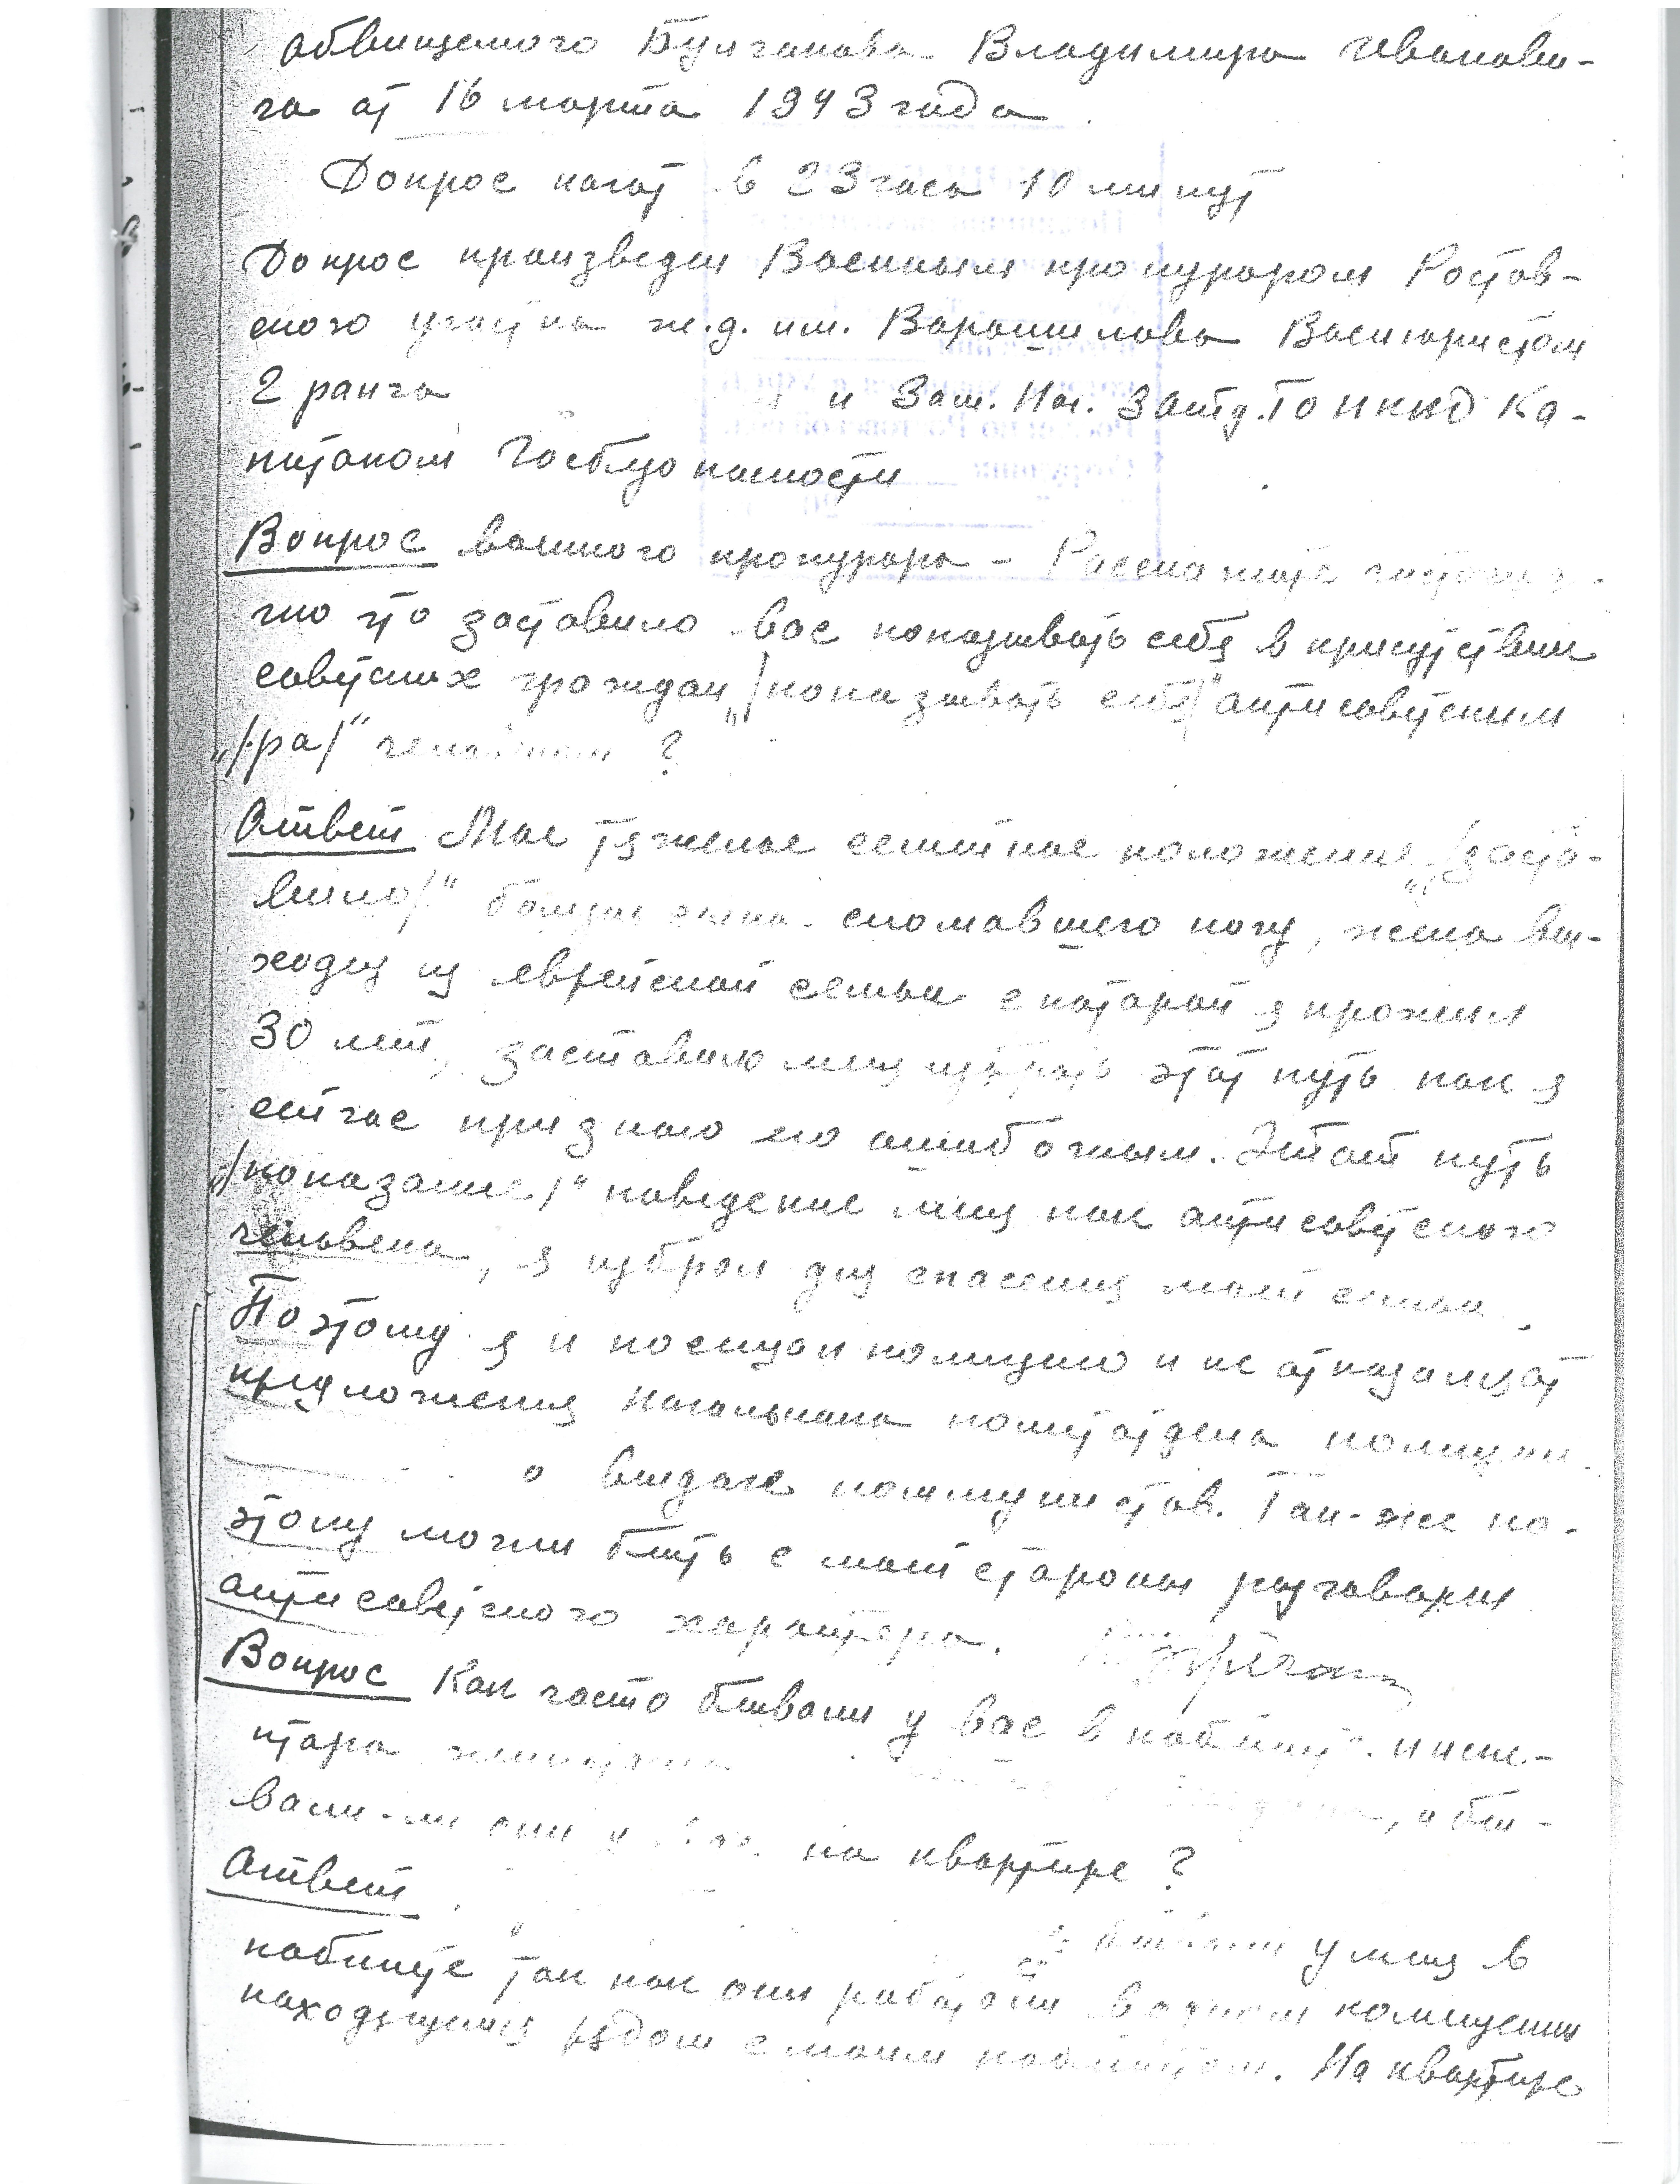 обвиняемого Булгакова Владимира Иванови-
ча от 16 марта 1943 года
Допрос начат в 23 часа 10 минут
Допрос произведен Военным прокурором Ростов-
ского участка ж.д. им. Ворошилова Военюристом
2 ранга и Зам. Нач. ТО НКВД Ка-
питаном Госбезопасности
Вопрос военного прокурора – Расскажите
что заставило вас показывать себя в присутствии
советских граждан „/показывать себя/“ антисоветским
„/ра/“ человеком ?
Ответ Мое тяжелое семейное положение „/заста-
вило/“ сына сломавшего ногу, жена вы-
ходец из еврейской семьи с которой я прожил
30 лет, заставило меня избрать этот путь как я
сейчас признаю его ошибочным. Этот путь
„/показание/“ поведение меня как антисоветского
человека, я избрал для спасения моей семьи.
Поэтому я и посещал полицию и не отказался от
предложения начальника политотдела полиции
о выдаче коммунистов. Так-же по-
этому могли быть с моей стороны разговоры
антисоветского характера.
Вопрос Как часто бывали у вас в кабинете
, и бы-
вали-ли они у на квартире ?
Ответ
бывали у меня в
кабинете так как они работали в одном помещении
находящемся рядом с моим кабинетом. На квартире